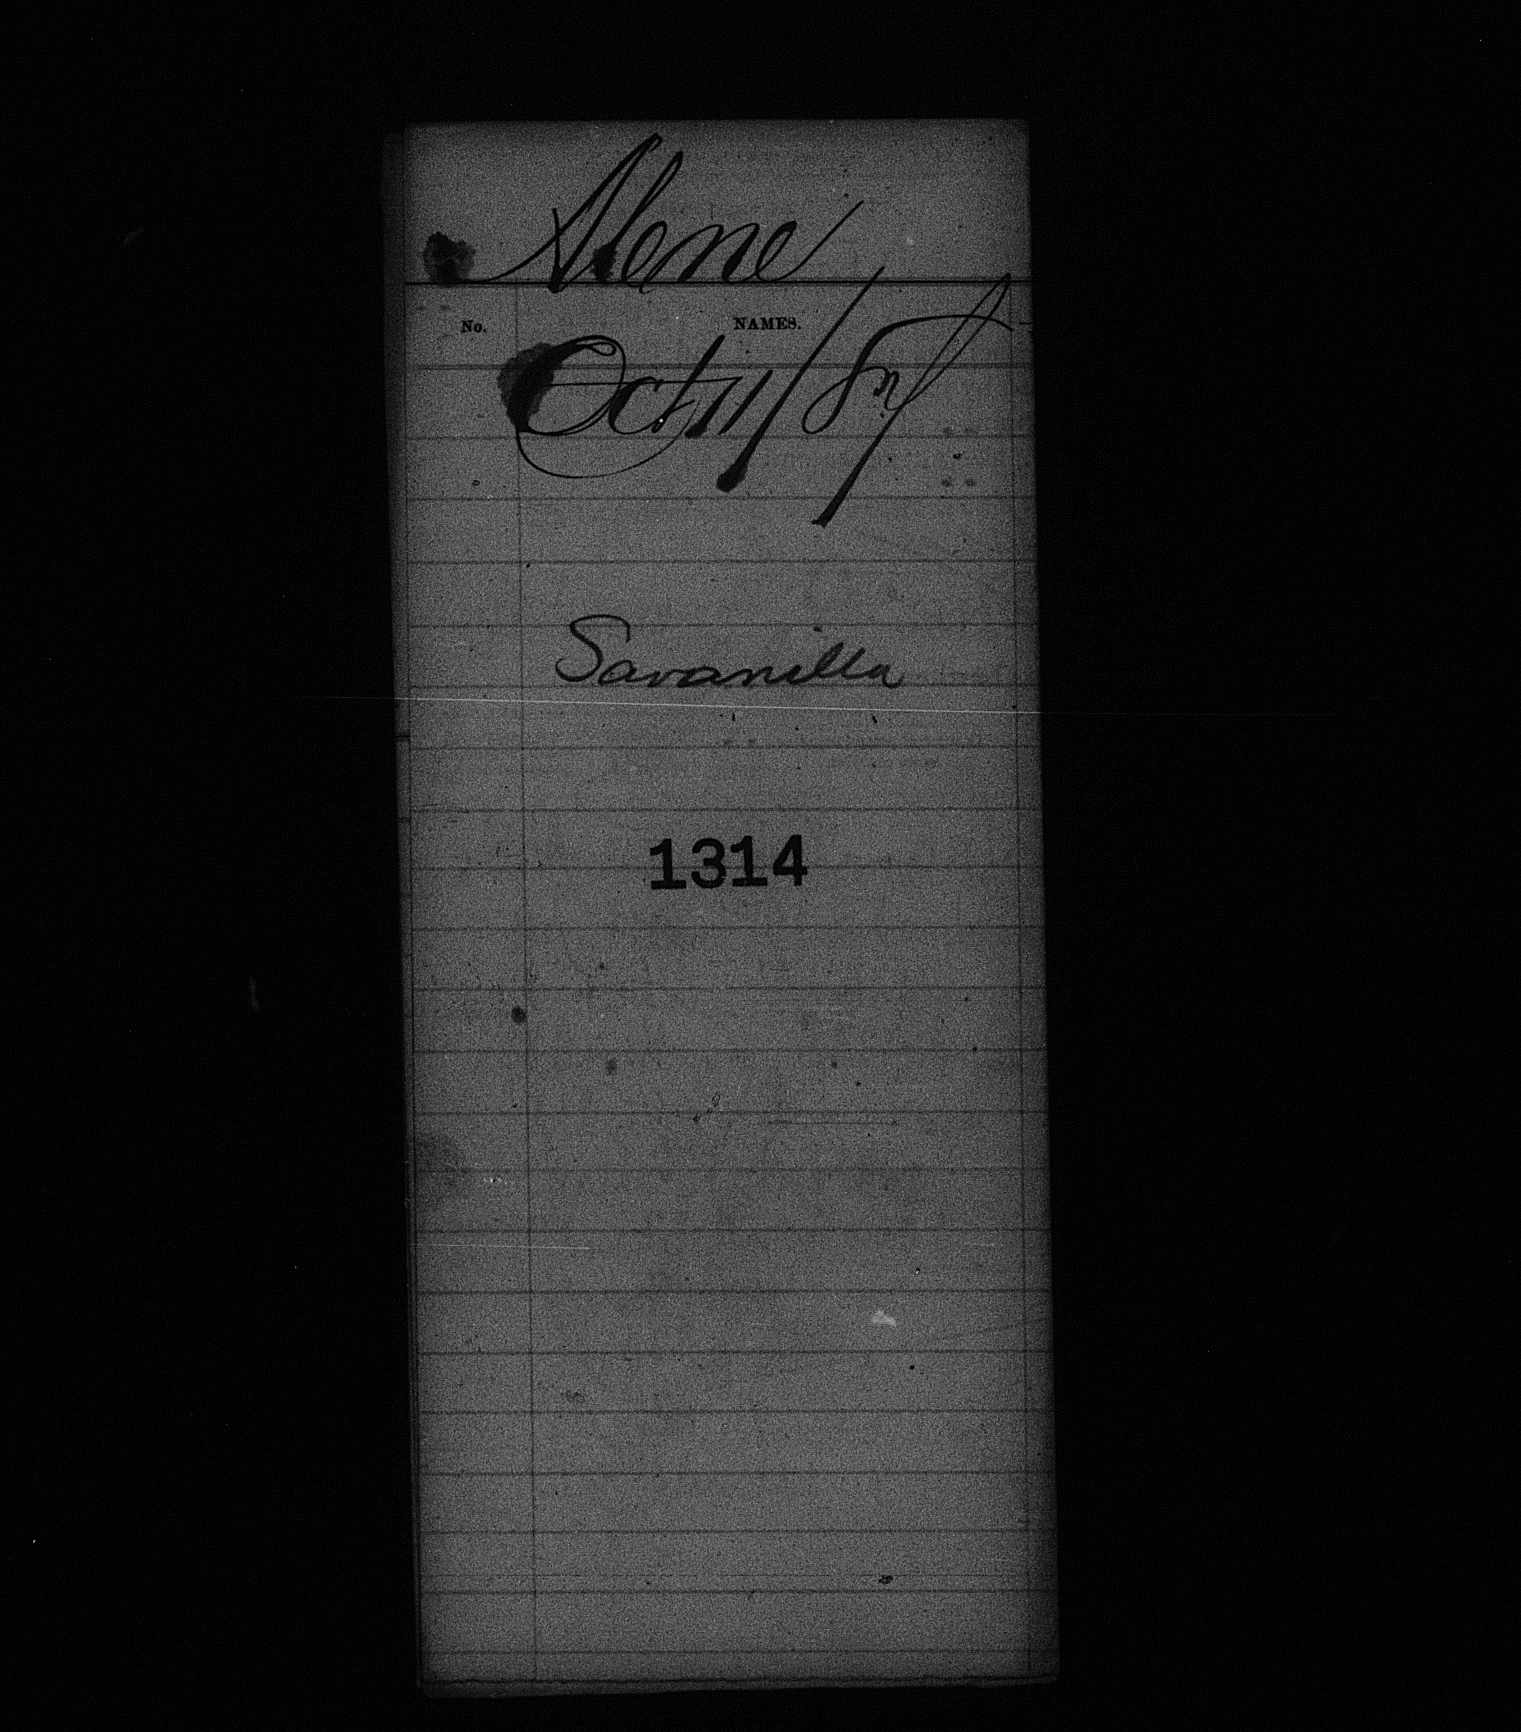 Alene
No. NAMES.
Oct 11/87
Savanilla
1314